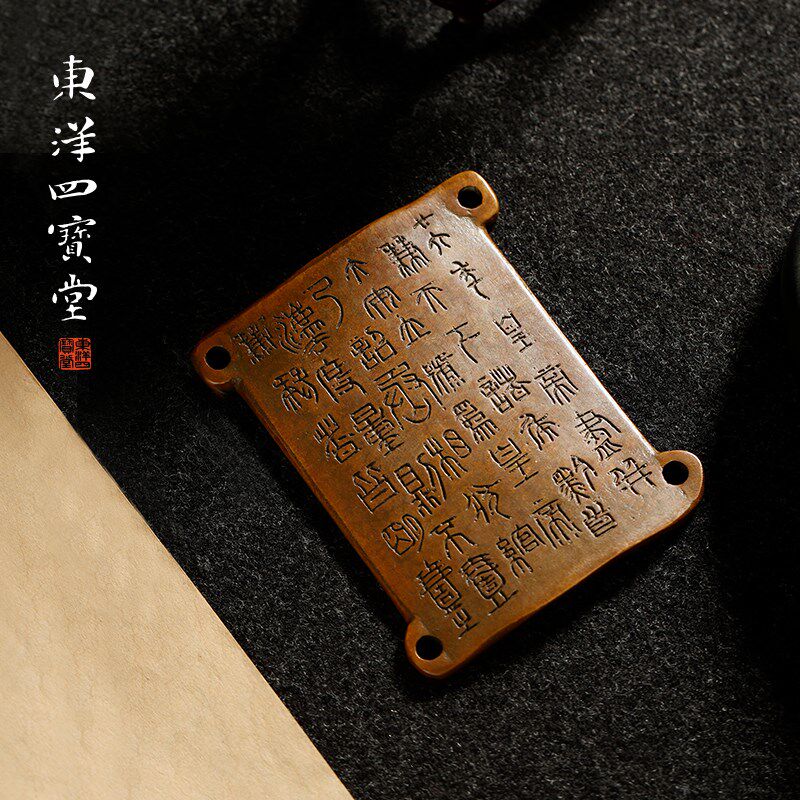 東洋四寶堂
東洋四寶堂
廿六年皇帝盡并
兼天下諸侯黔首
大安立號為皇帝
乃詔丞相狀綰
法度量則不壹
歉疑者皆明壹之